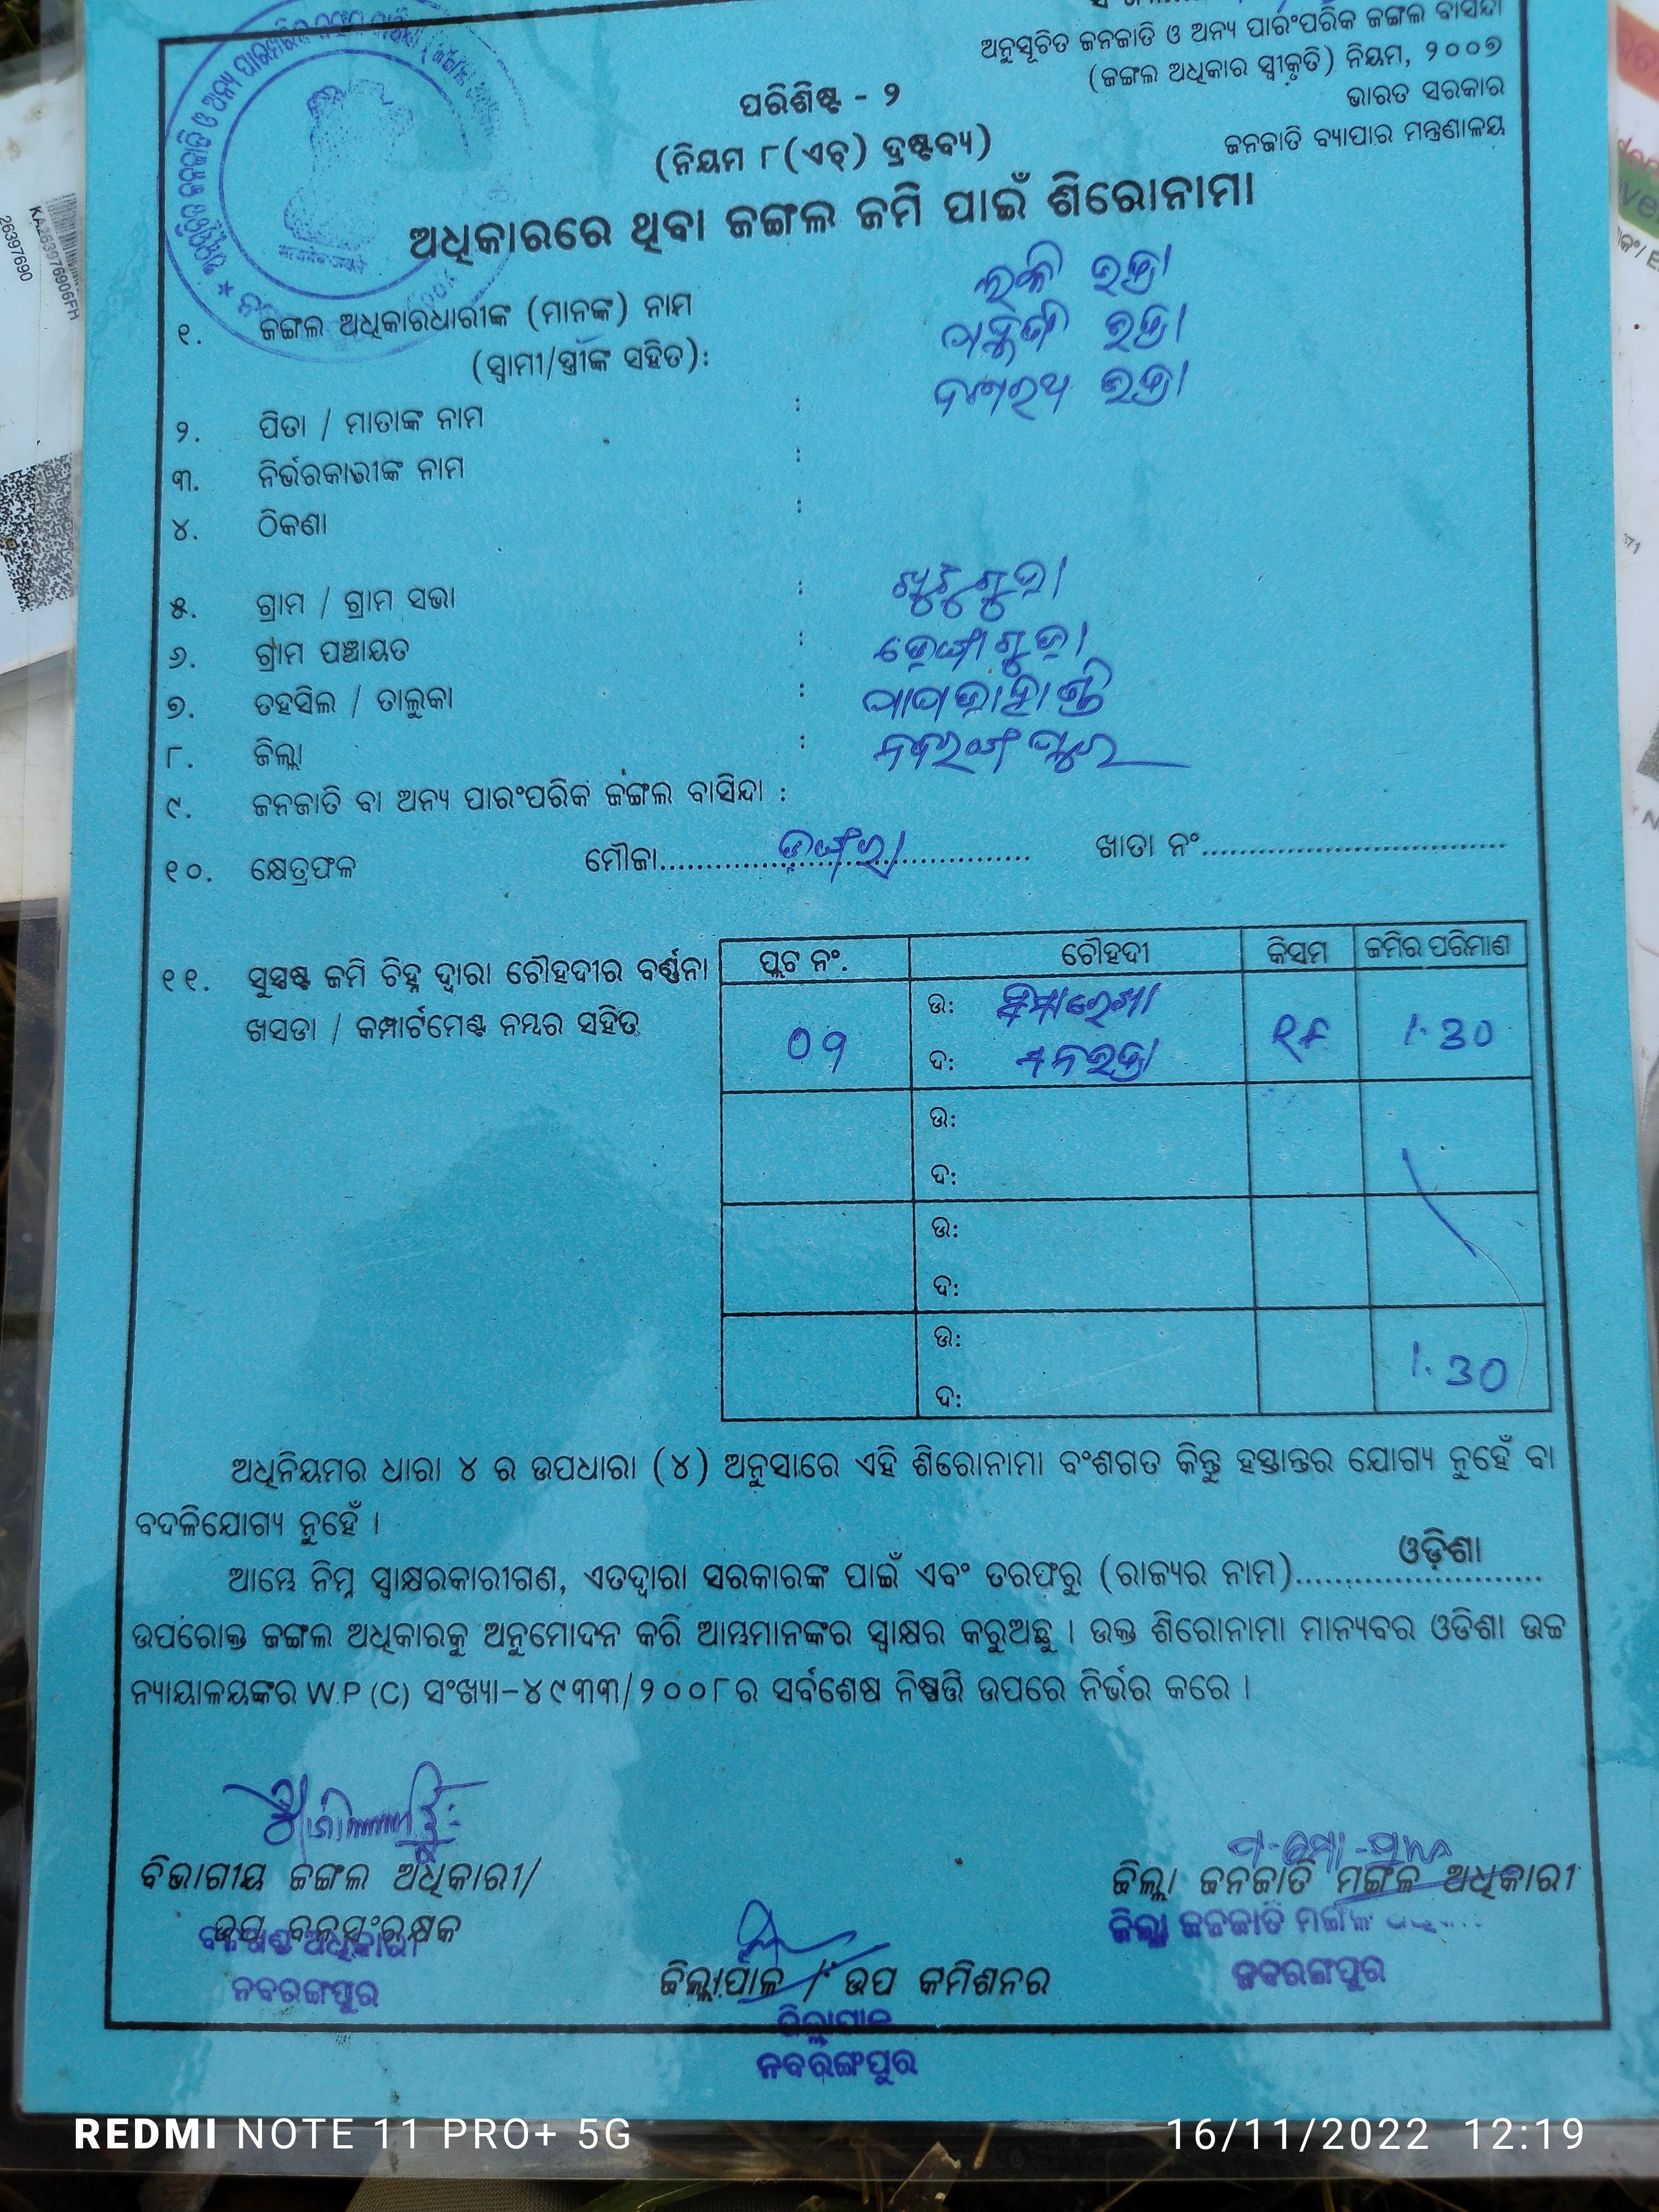 ଅନୁସୂଚିତ ଜନଜାତି ଓ ଅନ୍ୟ ପାରଂପରିକ ଜଙ୍ଗଲ ବାସିନ୍ଦା
(ଜଙ୍ଗଲ ଅଧିକାର ସ୍ୱୀକୃତି) ନିୟମ, ୨୦୦୭
ଭାରତ ସରକାର
ଜନଜାତି ବ୍ୟାପାର ମନ୍ତ୍ରଣାଳୟ
ପରିଶିଷ୍ଟ - ୨
(ନିୟମ ୮(ଏଚ୍) ଦ୍ରଷ୍ଟବ୍ୟ)
ଅଧିକାରରେ ଥିବା ଜଙ୍ଗଲ ଜମି ପାଇଁ ଶିରୋନାମା
୧. ଜଙ୍ଗଲ ଅଧିକାରଧାରୀଙ୍କ (ମାନଙ୍କ) ନାମ
(ସ୍ୱାମୀ/ସ୍ତ୍ରୀଙ୍କ ସହିତ):
୨. ପିତା / ମାତାଙ୍କ ନାମ :
୩. ନିର୍ଭରକାରୀଙ୍କ ନାମ :
୪. ଠିକଣା :
୫. ଗ୍ରାମ / ଗ୍ରାମ ସଭା :
୬. ଗ୍ରାମ ପଞ୍ଚାୟତ :
୭. ତହସିଲ / ତାଲୁକା : ପାପଡାହାଣ୍ଡି
୮. ଜିଲ୍ଲା : ନବରଙ୍ଗପୁର
୯. ଜନଜାତି ବା ଅନ୍ୟ ପାରଂପରିକ ଜଙ୍ଗଲ ବାସିନ୍ଦା :
୧୦. କ୍ଷେତ୍ରଫଳ ମୌଜା.................... ଖାତା ନଂ....................
୧୧. ସୁସ୍ପଷ୍ଟ ଜମି ଚିହ୍ନ ଦ୍ୱାରା ଚୌହଦୀର ବର୍ଣ୍ଣନା
ଖସଡା / କମ୍ପାର୍ଟମେଣ୍ଟ ନମ୍ବର ସହିତ
ପ୍ଲଟ ନଂ. ଚୌହଦୀ କିସମ ଜମିର ପରିମାଣ
ଉ: ସିମାରେଖା
09 ଦ: 1.30
ଉ:
ଦ:
ଉ:
ଦ:
ଉ:
ଦ: 1.30
ଅଧିନିୟମର ଧାରା ୪ ର ଉପଧାରା (୪) ଅନୁସାରେ ଏହି ଶିରୋନାମା ବଂଶଗତ କିନ୍ତୁ ହସ୍ତାନ୍ତର ଯୋଗ୍ୟ ନୁହେଁ ବା
ବଦଳିଯୋଗ୍ୟ ନୁହେଁ ।
ଆମ୍ଭେ ନିମ୍ନ ସ୍ୱାକ୍ଷରକାରୀଗଣ, ଏତଦ୍ୱାରା ସରକାରଙ୍କ ପାଇଁ ଏବଂ ତରଫରୁ (ରାଜ୍ୟର ନାମ)....ଓଡ଼ିଶା....
ଉପରୋକ୍ତ ଜଙ୍ଗଲ ଅଧିକାରକୁ ଅନୁମୋଦନ କରି ଆମ୍ଭମାନଙ୍କର ସ୍ୱାକ୍ଷର କରୁଅଛୁ । ଉକ୍ତ ଶିରୋନାମା ମାନ୍ୟବର ଓଡିଶା ଉଚ୍ଚ
ନ୍ୟାୟାଳୟଙ୍କର W.P (C) ସଂଖ୍ୟା-୪୯୩୩/୨୦୦୮ର ସର୍ବଶେଷ ନିଷ୍ପତ୍ତି ଉପରେ ନିର୍ଭର କରେ ।
ବିଭାଗୀୟ ଜଙ୍ଗଲ ଅଧିକାରୀ/
ଉପ ବନସଂରକ୍ଷକ
ନବରଙ୍ଗପୁର
ଜିଲ୍ଲାପାଳ / ଉପ କମିଶନର
ଜିଲ୍ଲାପାଳ
ନବରଙ୍ଗପୁର
ଜିଲ୍ଲା ଜନଜାତି ମଙ୍ଗଳ ଅଧିକାରୀ
ଜିଲ୍ଲା ଜନଜାତି ମଙ୍ଗଳ
ନବରଙ୍ଗପୁର
26397690
KA263976906FH
REDMI NOTE 11 PRO+ 5G
16/11/2022 12:19